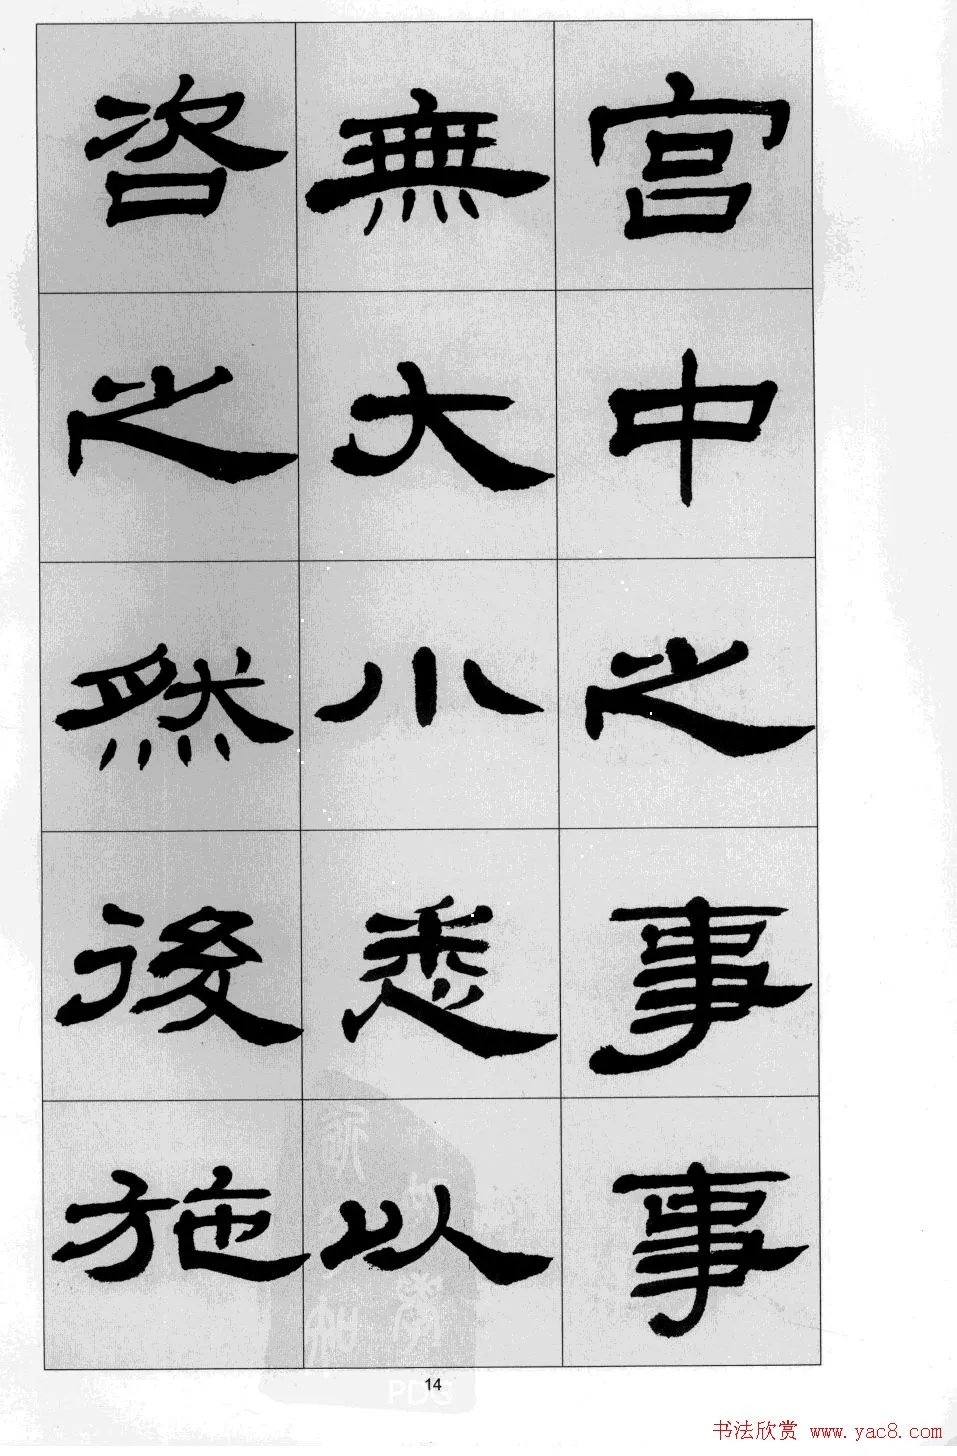 宫中之事事
無大小悉以
咨之然後施
14
PDG
书法欣赏 www.yac8.com